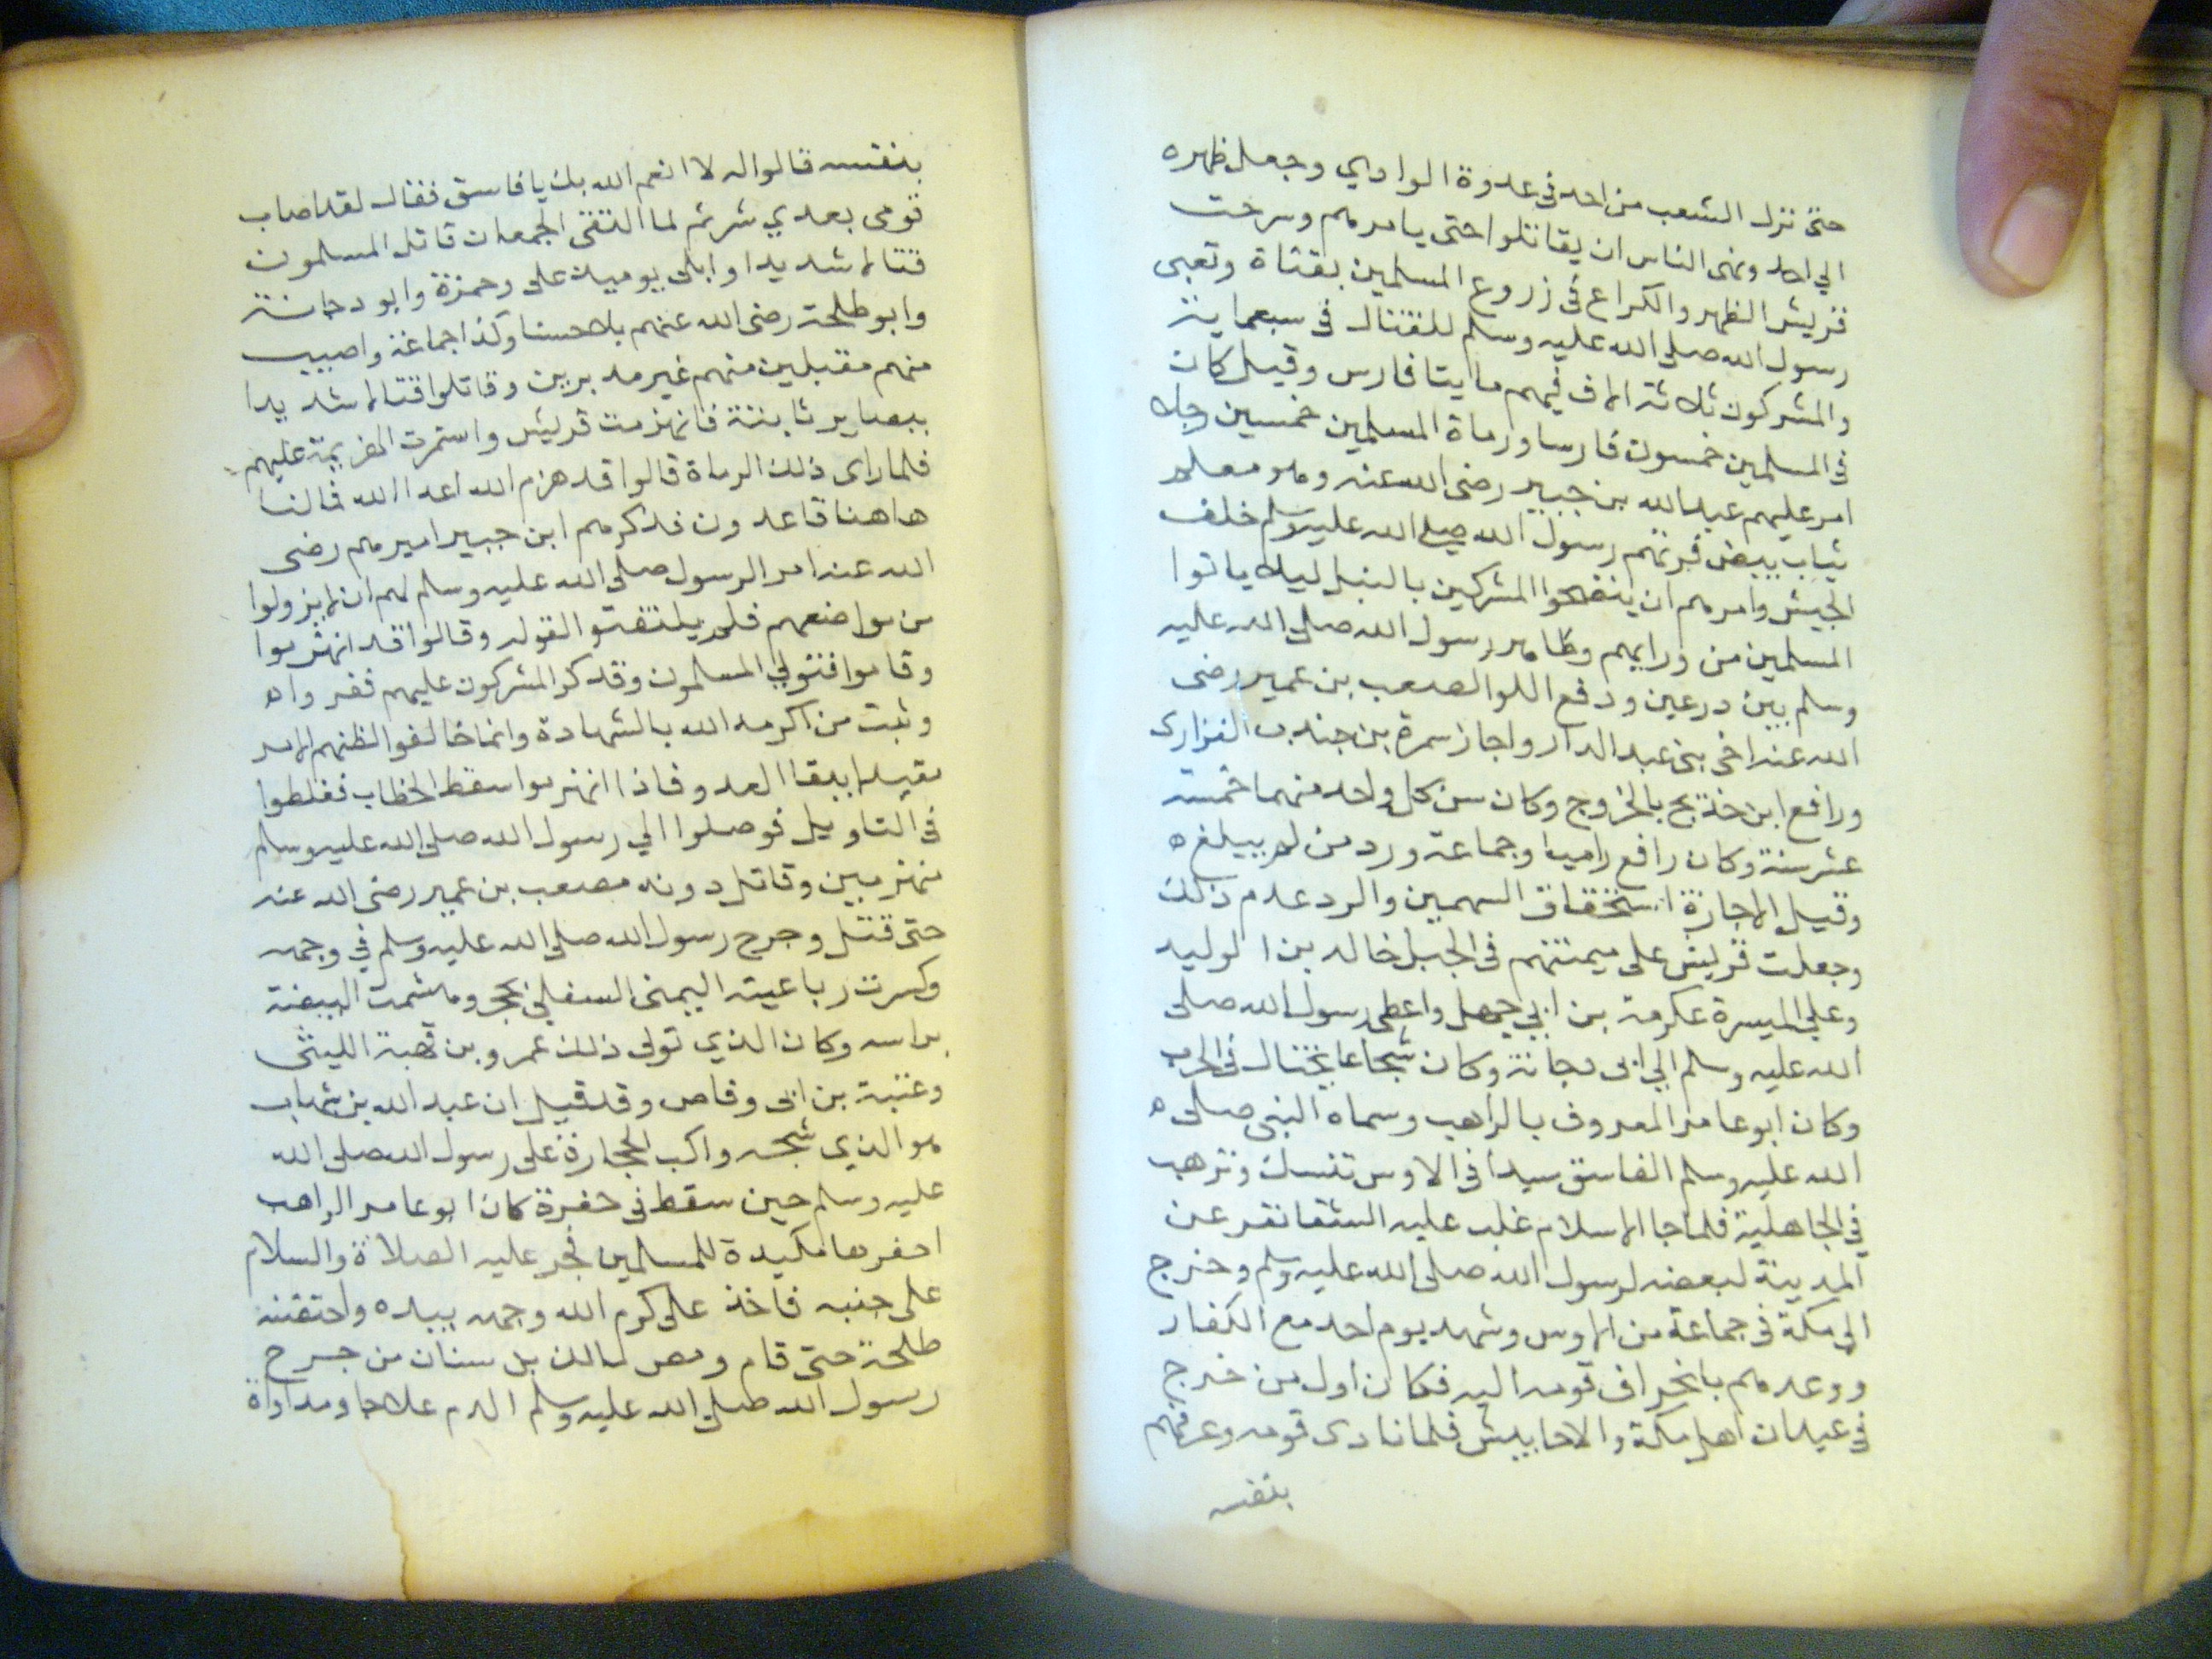 حتى نزل الشعب من احد في عدوة الوادي وجعل ظهره
الي احد ونهى الناس ان يقاتلوا حتى يامرهم وسرحت
قريش الظهر والكراع في زروع المسلمين بقناة وتعبى
رسول الله صلى الله عليه وسلم للقتال في سبعماية
والمشركون ثلاثة الاف فيهم مايتا فارس وقيل كان
في المسلمين خمسون فارسا ورماة المسلمين خمسين رجلا
امر عليهم عبد الله بن جبير رضى الله عنه وهو معلم
بثياب بيض فرتبهم رسول الله صلى الله عليه وسلم خلف
الجيش وامرهم ان ينضحوا المشركين بالنبل ليلا ياتوا
المسلمين من ورايهم وظاهر رسول الله صلى الله عليه
وسلم بين درعين ودفع اللوا لمصعب بن عمير رضى
الله عنه اخى بنى عبد الدار واجاز سمرة بن جندب الفزارى
ورافع ابن خديج بالخروج وكان سن كل واحد منهما خمسة
عشر سنة وكان رافع راميا وجماعة ورد من لم يبلغ ه
وقيل الاجازة استحقاق السهمين والرد عدم ذلك
وجعلت قريش على ميمنتهم في الجبل خالد بن الوليد
وعلي الميسرة عكرمة بن ابي جهل واعطى رسول الله صلى
الله عليه وسلم الي ابى دجانة وكان شجاعا يختال في الحرب
وكان ابو عامر المعروف بالراهب وسماه النبى صلى ه
الله عليه وسلم الفاسق سيدا في الاوس تنسك وترهب
في الجاهلية فلما جا الاسلام غلب عليه الشقا نفر عن
المدينة لبعضه لرسول الله صلى الله عليه وسلم وخرج
الى مكة في جماعة من الاوس وشهد يوم احد مع الكفار
ووعدهم بانحراف قومه اليه فكان اول من خرج
في عبدان اهل مكة والاحابيش فلما نادى قومه وعرفهم
بنفسه
بنفسه قالوا له لا انعم الله بك يا فاسق فقال لقد اصاب
قومى بعدي شر ثم لما التقى الجمعان قاتل المسلمون
قتالا شديدا وابلى يوميذ على وحمزة وابو دجانة
وابو طلحة رضى الله عنهم بلا حسنا وكذا جماعة واصيب
منهم مقبلين منهم غير مدبرين وقاتلوا قتالا شديدا
ببصاير ثابتة فانهزمت قريش واستمرت الهزيمة عليهم
فلما راى ذلك الرماة قالوا قد هزم الله اعدا الله فما لنا
هاهنا قاعدون فذكرهم ابن جبير اميرهم رضى
الله عنه امر الرسول صلى الله عليه وسلم لهم ان لا يزولوا
من مواضعهم فلم يلتفتو القوله وقالوا قد انهزموا
وقاموا فتولي المسلمون وقد كر المشركون عليهم ففروا ه
وثبت من اكرمه الله بالشهادة وانما خالفوا لظنهم الامر
مقيدا ببقا العدو فاذا انهزموا سقط الخطاب فغلطوا
في التاويل فوصلوا الي رسول الله صلى الله عليه وسلم
منهزمين وقاتل دونه مصعب بن عمير رضى الله عنه
حتى قتل وجرح رسول الله صلى الله عليه وسلم في وجهه
وكسرت رباعيته اليمنى السفلي بحجر وهشمت البيضة
براسه وكان الذي تولى ذلك عمرو بن قمية الليثى
وعتبة بن ابى وقاص وقد قيل ان عبد الله بن شهاب
هو الذي شجه واكب الحجارة على رسول الله صلى الله
عليه وسلم حين سقط في حفرة كان ابو عامر الراهب
احفرها مكيدة للمسلمين فخر عليه الصلاة والسلام
على جنبه فاخذ على كرم الله وجهه بيده واحتضنه
طلحة حتى قام ومص مالك بن سنان من جرح
رسول الله صلى الله عليه وسلم الدم علاجا ومداواة